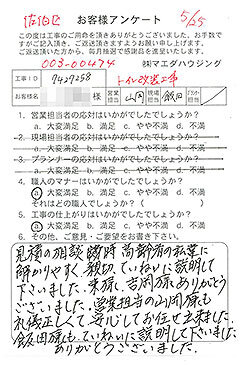 佐伯区
お客様アンケート
5/25
この度は工事のご用命を頂きありがとうございました。お手数で
すがご記入頂き、ご返送頂きますようお願い申し上げます。
ご返送頂いた方から、毎月抽選で感謝品を進呈いたします。
003-00474
㈱マエダハウジング
工事ID
9429258
トイレ改造工事
お名前
様
担当
営業
山岡
飯田
1. 営業担当者の応対はいかがでしたでしょうか?
a. 大変満足 b. 満足 c. やや不満 d. 不満
2. 現場担当者の応対はいかがでしたでしょうか?
a. 大変満足 b. 満足 c. やや不満 d. 不満
3. プランナーの応対はいかがでしたでしょうか?
a. 大変満足 b. 満足 c. やや不満 d. 不満
4. 職人のマナーはいかがでしたでしょうか?
a. 大変満足 b. 満足 c. やや不満 d. 不満
それはどの職人でしょうか?(
)
5. 工事の仕上がりはいかがでしたでしょうか?
a. 大変満足 b. 満足 c. やや不満 d. 不満
6. その他、ご意見・ご要望をお書き下さい。
見積の相談時 高齢者の私達に
解かりやすく、親切、ていねいに説明して
下さいました。末廣、吉岡様ありがとう
ございました。営業担当の山岡様も
礼儀正しくて安心してお任せ出来ました。
飯田様もていねいに説明して下さいました
ありがとうございました。